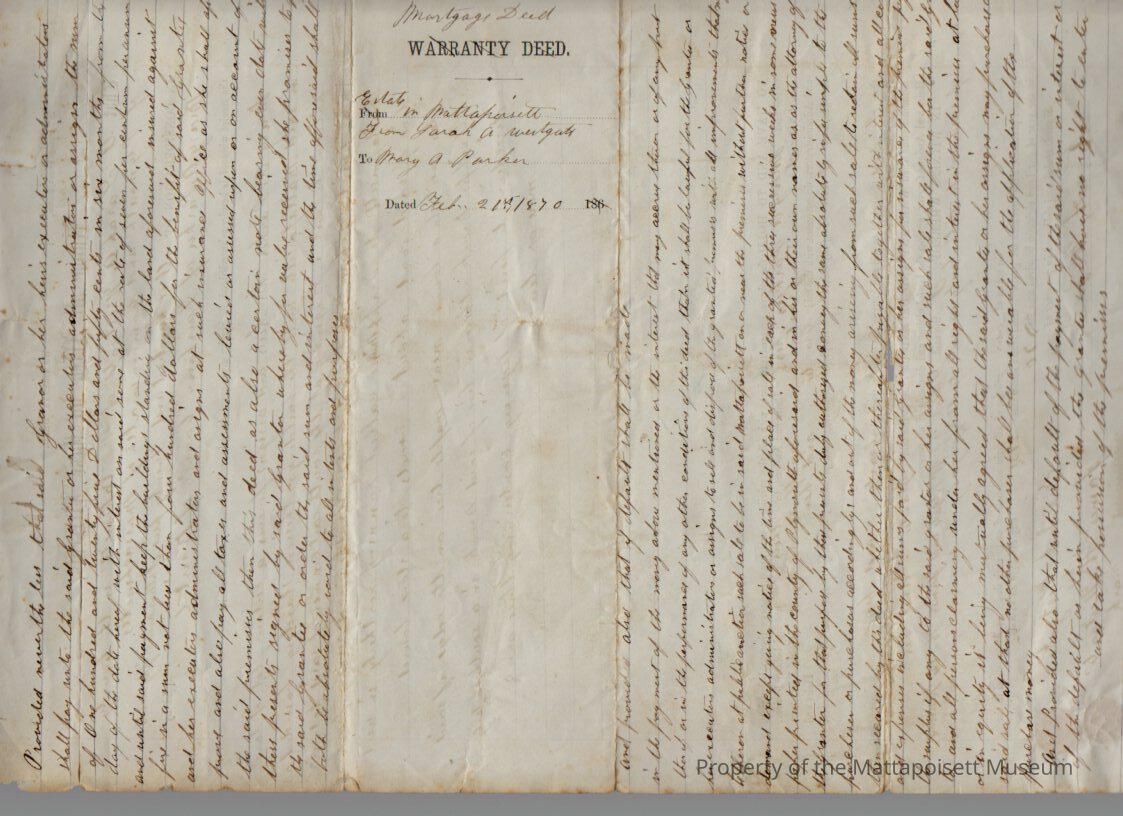 Mortgage Deed
WARRANTY DEED.
Estate
From in Mattapoisett
From Sarah A Westgate
To Mary A Parker
Dated Feb. 21st 1870 186
Provided nevertheless that if grantor or her heirs executors or administrators
shall pay unto the said grantee or her executors administrators or assigns the sum
of One hundred and twenty five Dollars and fifty cents in six months from the
day of the date hereof with interest on said sum at the rate of seven per centum per annum
and until said payment keep the buildings standing on the land aforesaid insured against
fire in a sum not less than four hundred dollars for the benefit of said grantee
and her executors administrators and assigns at such insurance office as she shall ap
prove and also pay all taxes and assessments levied or assessed upon or on account of
the said premises then this deed as also a certain note bearing even date with
these presents signed by said grantor whereby for value received she promises to
the said grantee or order the said sum and interest and the time aforesaid shall
both be absolutely void to all intents and purposes
and provided also that if default shall be made
in the payment of the money above mentioned or the interest that may accrue thereon or of any part
thereof or in the performance of any other condition of this deed then it shall be lawful for the grantee or
her executors administrators or assigns to sell and dispose of the granted premises with all improvements that
thereon at public auction such sale to be in said Mattapoisett on or near the premises without further notice or
demand except giving notice of the time and place of sale in each of three successive weeks in some news
paper printed in the county of Plymouth aforesaid and in his or their own names or as the attorney of
the grantor for that purpose by these presents duly authorized convey the same absolutely in fee simple to the
purchaser or purchasers accordingly and out of the money arising from such sale to retain all sums
secured by this deed whether then or thereafter payable together with interest and all
expenses including all sums paid by said grantee or her assigns for insurance of the premises
if any to the said grantor or her assigns and such sale shall forever bar the said grantor
and all persons claiming under her from all right and interest in the premises at law
or in equity it is being mutually agreed that the said grantee or her assigns may purchase
at said sale and that no other purchaser shall be answerable for the application of the
purchase money
And Provided also that until default of the payment of the said sum or interest or
of the default as herein provided the grantee shall have no right to enter
and take possession of the premises
Property of the Mattapoisett Museum